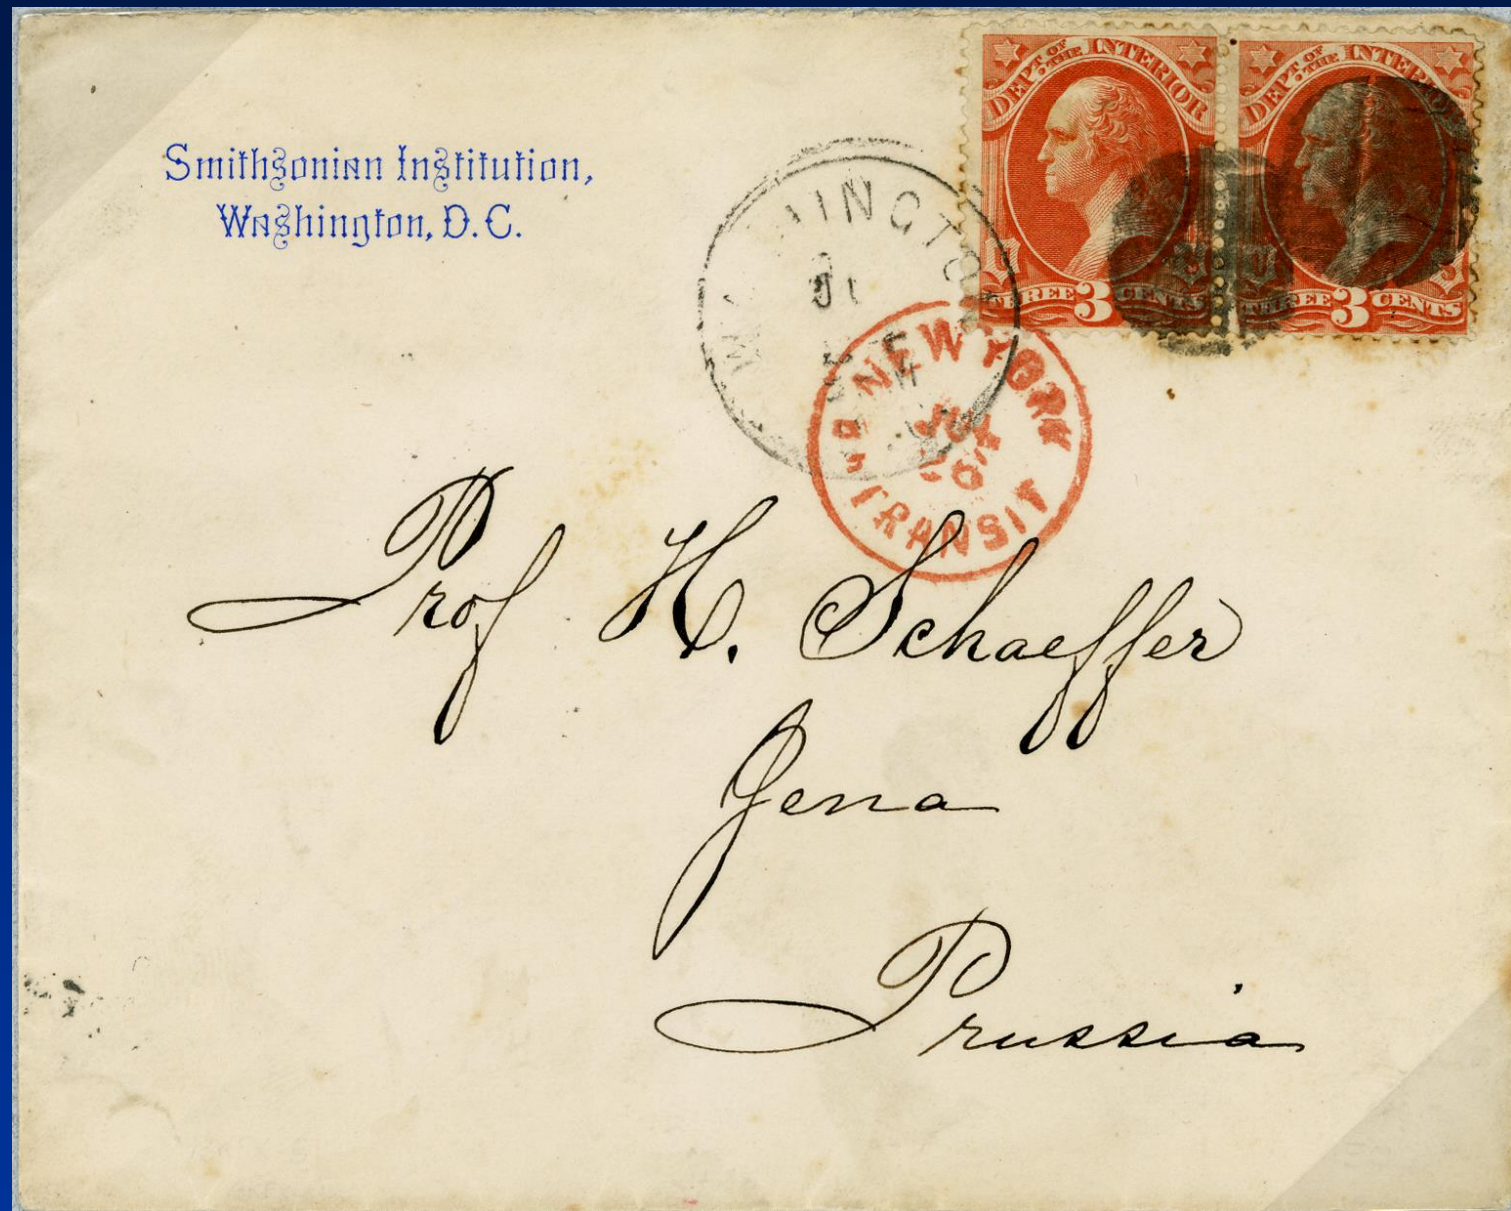 Smithsonian Institution,
Washington, D.C.
DEPT. OF THE INTERIOR
THREE 3 CENTS
DEPT. OF THE INTERIOR
THREE 3 CENTS
NEW YORK
TRANSIT
Prof H. Schaeffer
Jena
Prussia